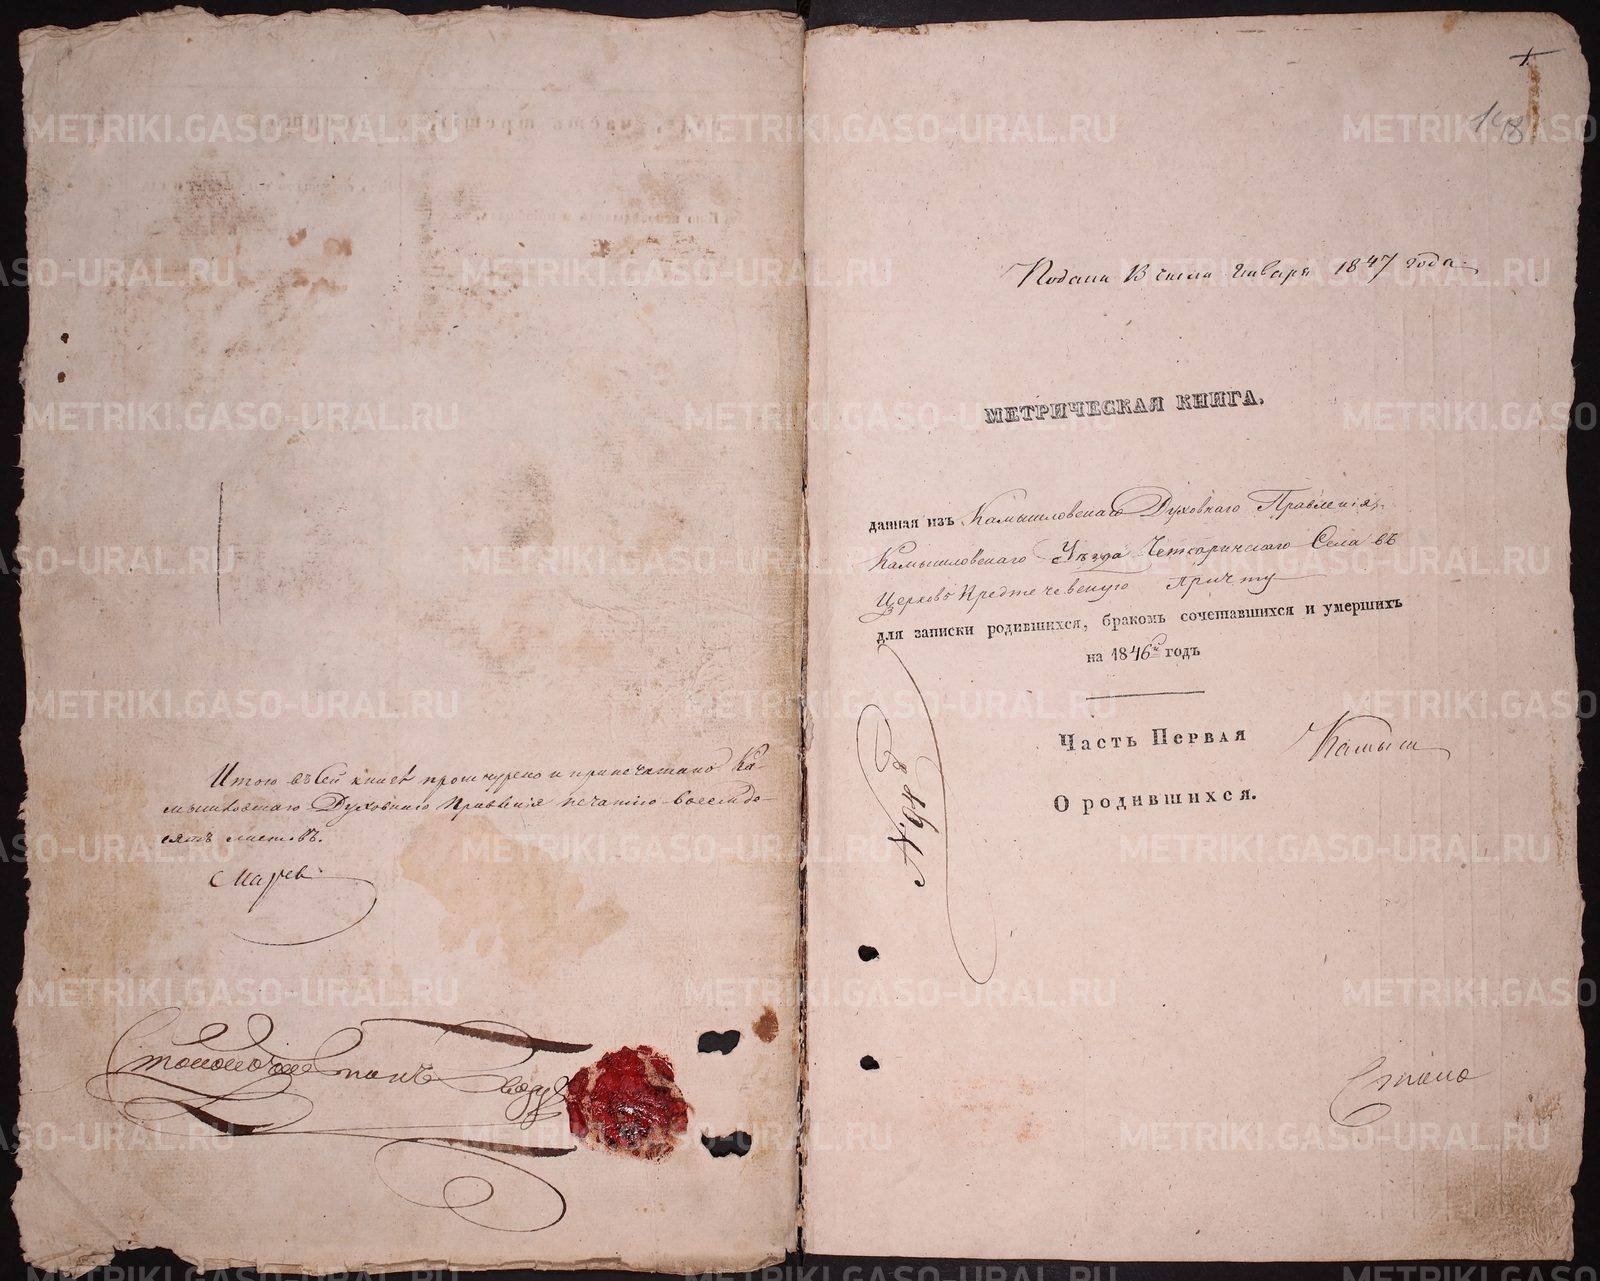 Итого въ сей книгѣ прошнурено и припечатано Ка-
мышловскаго Духовнаго Правленія печатію восемьдо-
сятъ листовъ.
148
Подана 13 числа Января 1847 года.
МЕТРИЧЕСКАЯ КНИГА.
данная изъ Камышловскаго Духовнаго Правленія,
Камышловскаго Уѣзда Четкаринскаго Села въ
Церковь Предтечевскую причту
для записки родившихся, бракомъ сочетавшихся и умершихъ
на 1846й годъ
Часть Первая
Камыш
О родившихся.
№ 94
METRIKI.GASO-URAL.RU